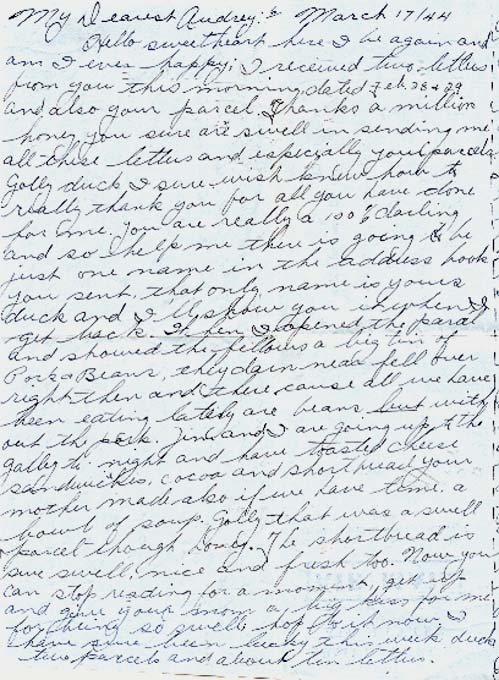 My Dearest Audrey:- March 17/44
Hello sweetheart here I be again and
am I ever happy; I received two letters
from you this morning dated Feb. 28 & 29
and also your parcel. Thanks a million
honey you sure are swell in sending me
all these letters and especially your parcels
Golly duck I sure wish knew how to
really thank you for all you have done
for me. you are really a 100% darling
and so help me there is going to be
just one name in the address book
you sent, that only name is yours
duck and I'll show you it when I
get back. When I opened the parcel
and showed the fellows a big tin of
Pork & Beans, they darn near fell over
right then and there cause all we have
been eating lately are beans but with
out the pork. Jim and I are going up to the
galley to-night and have toasted cheese
sandwiches, cocoa and shortbread your
mother made also if we have time. a
bowl of soup. Golly that was a swell
parcel though honey. The shortbread is
sure swell, nice and fresh too. Now you
can stop reading for a moment, get up
and give your mom a big kiss for me
for being so swell. hop to it now. I
have sure been lucky this week duck
two parcels and about ten letters.